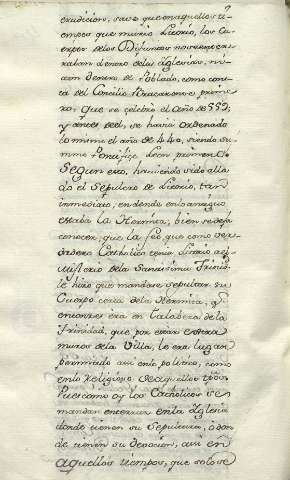 9
erudicion, save que en aquellos ti-
empos que murio Licorio, los cu-
erpos de los Difuntos no se enter-
ravan dentro de las Yglesias, ni
aun dentro de Poblado, como cons-
ta del Concilio Bracarense prime-
ro, que se celebró el año de 552,
y antes de el, se havia ordenado
lo mismo el año de 440, siendo su-
mmo Pontifice Leon primero.
Segun esto, haviendo sido alla-
do el sepulcro de Licorio, tan
inmediato, en donde en lo antiguo
estaba la Hermita, bien se deja
conocer, que la feé, que como ver-
dadero Catholico tenia Licorio al
misterio de la Santisima Trinid.
le hizo que mandase sepultar su
Cuerpo cerca de la Hermita, q.
entonces era en Calabera de la
Trinidad, que por estar extra
muros de la Villa, le era lugar
permitido asi en lo politico, como
en lo Religioso de aquellos tpôs.
Pues como oy los Catholicos se
mandan enterrar en la Yglesia
donde tienen su sepultura, o don-
de tienen su devocion, asi en
aquellos tiempos, que solo se